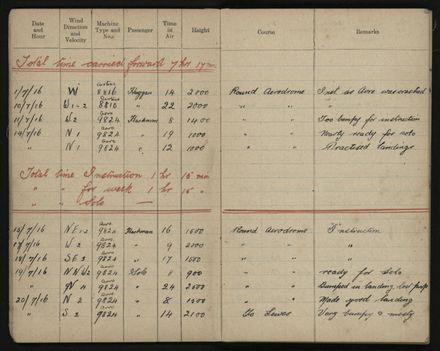 Date and Hour | Wind Direction and Velocity | Machine Type and No. | Passenger | Time in Air | Height | Course | Remarks
Total time carried forward 7 hr 17 min
1/7/16 | W | Curtiss 8816 | | 14 | 2000 | Round Aerodrome | Inst. as Avro was crashed
10/7/16 | W 1-2 | Curtiss 8810 | " | 22 | 2000 | " " | "
11/7/16 | W 2 | Avro 9824 | | 8 | 1400 | " " | Too bumpy for instruction
14/7/16 | N 1 | Avro 9824 | " | 19 | 1000 | " " | Nearly ready for solo
" | N 1 | Avro 9824 | " | 12 | 1000 | " " | Practised landings
Total time Instruction 1 hr 15 min
" " for week 1 hr 15 "
" " Solo —
15/7/16 | NE 1-2 | Avro 9824 | | 16 | 1500 | Round Aerodrome | Instruction
17/7/16 | W 2 | Avro 9824 | " | 9 | 2000 | " " | "
18/7/16 | SE 3 | Avro 9824 | " | 17 | 1500 | " " | "
19/7/16 | NNW 2 | Avro 9824 | Solo | | 900 | " " | ready for Solo
" | | Avro 9824 | " | 24 | 2500 | " " | Bumped in landing, lost prop
20/7/16 | N 2 | Avro 9824 | " | 8 | | " " | Made good landing
" | S 2 | Avro 9824 | " | 14 | 2100 | To Lewes | Very bumpy & misty